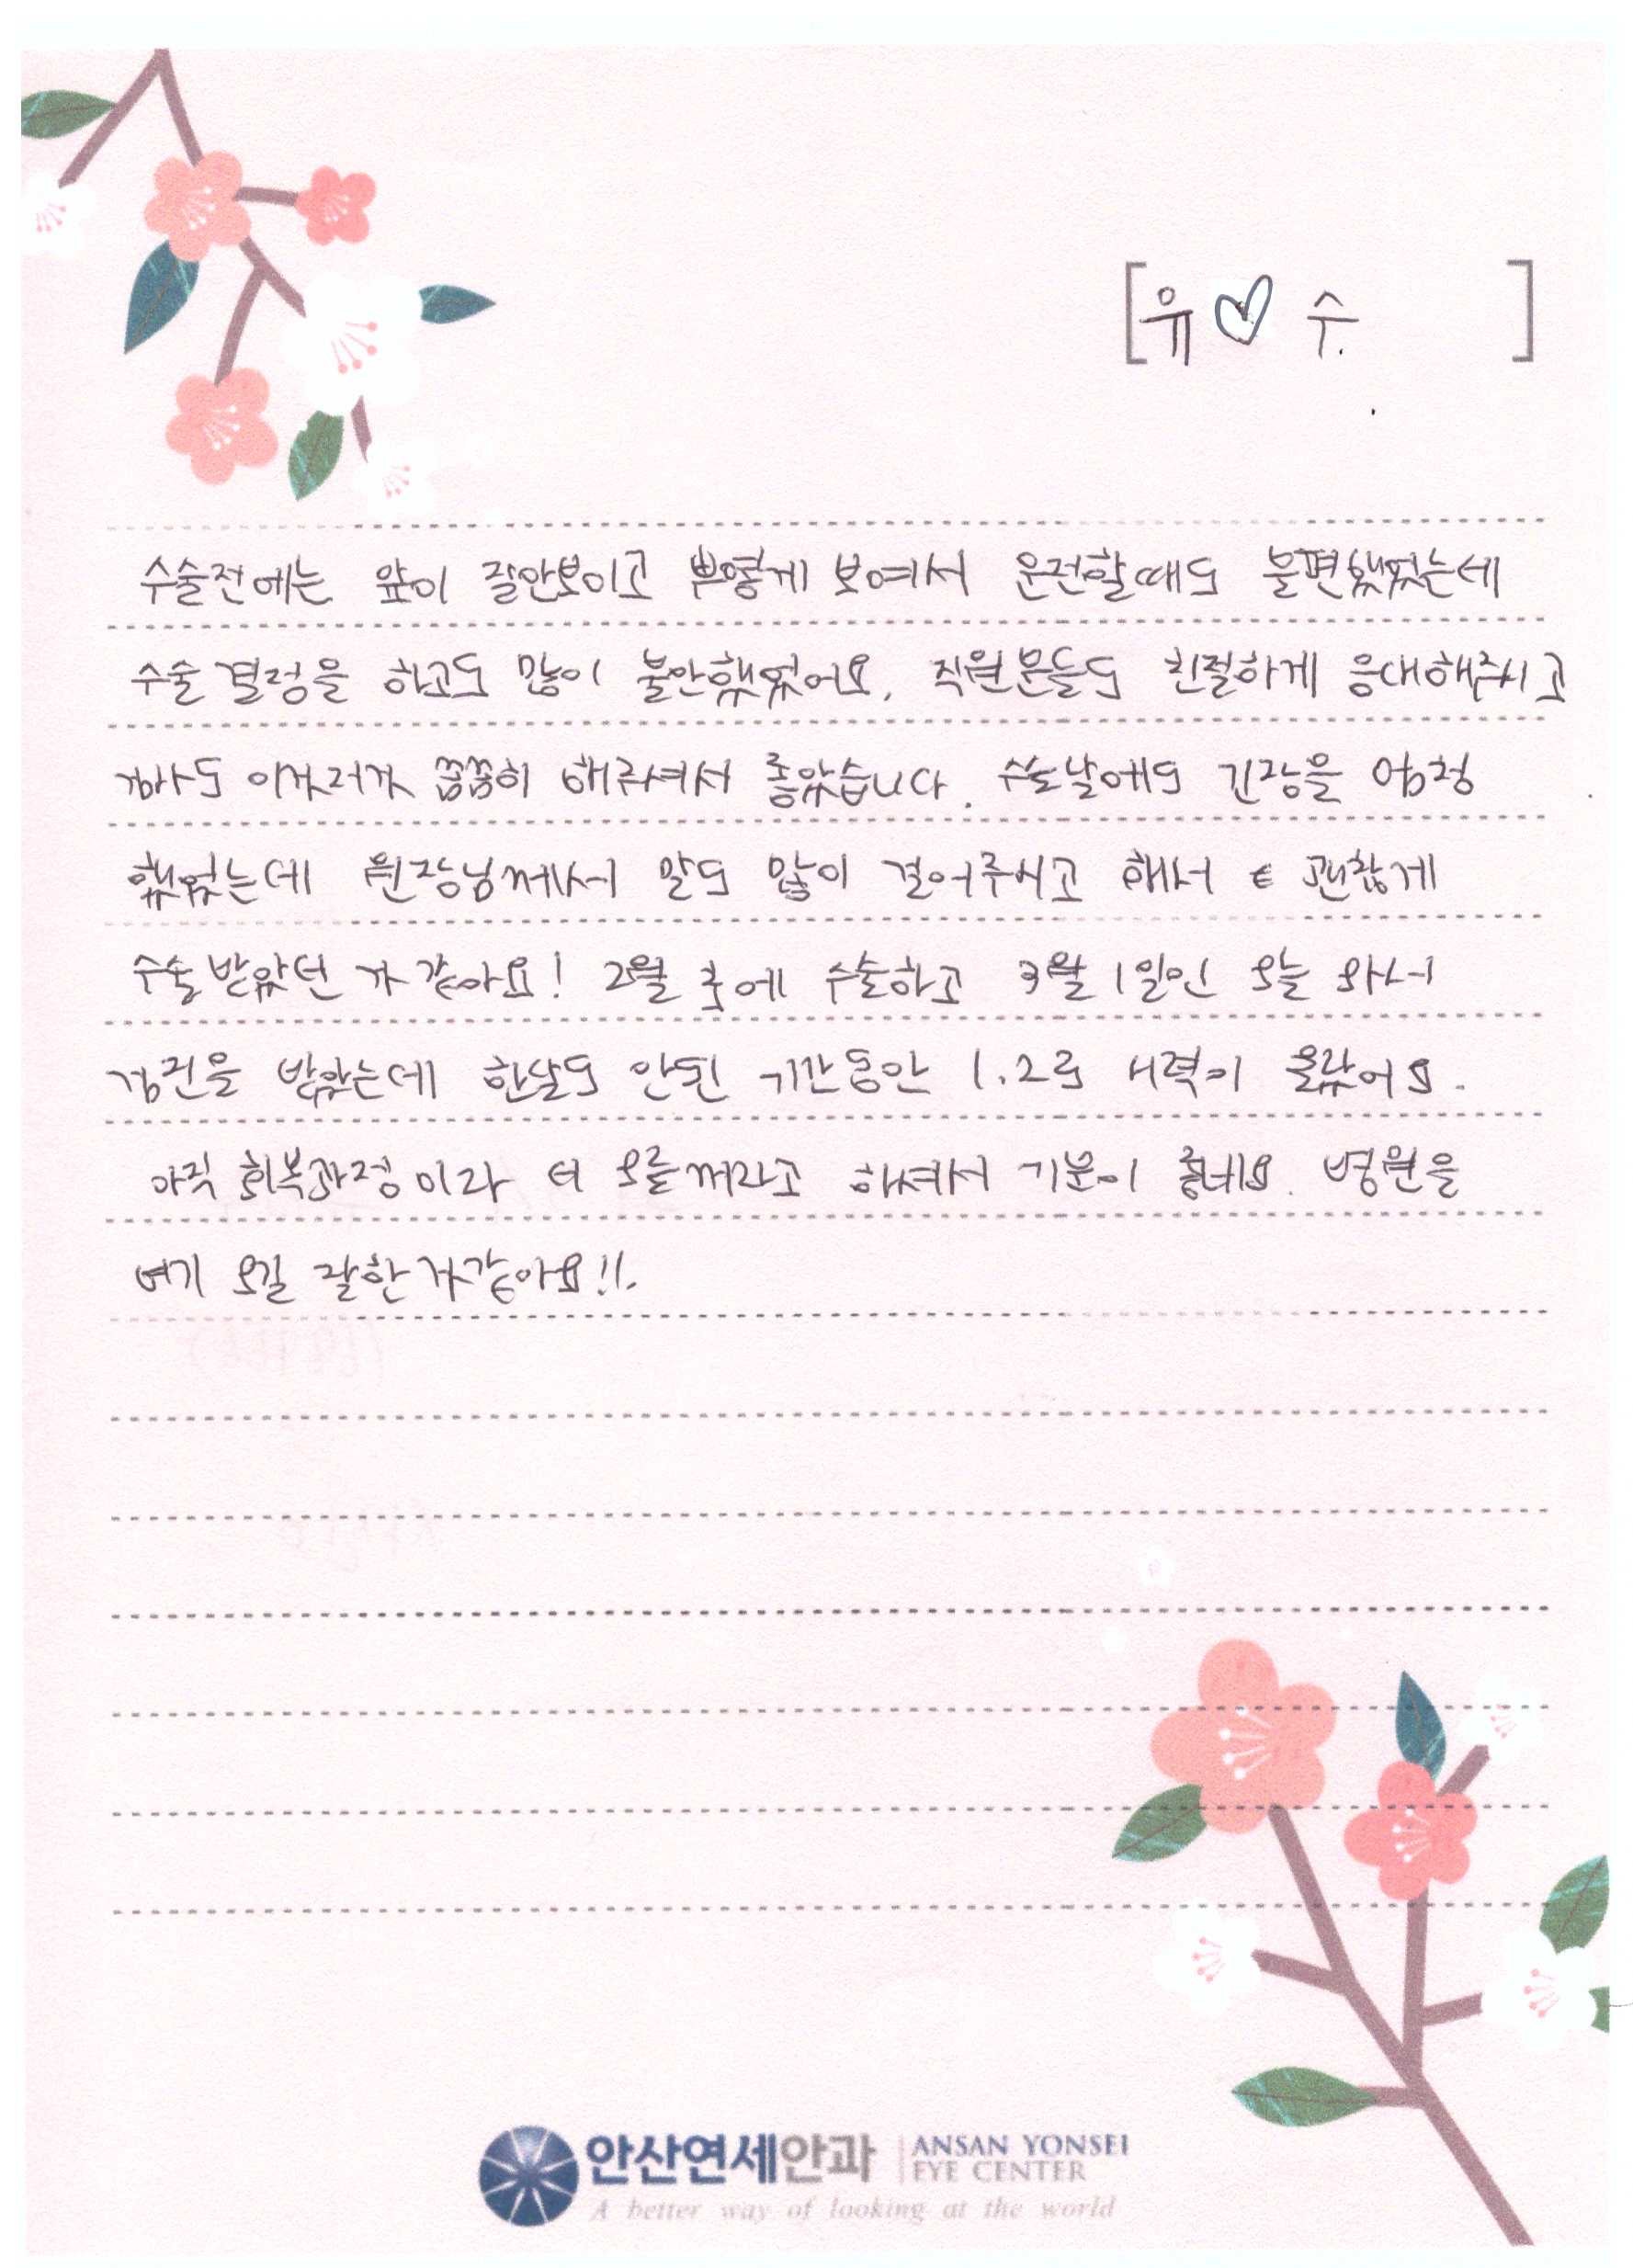 [유♡수]
수술전에는 앞이 잘안보이고 뿌옇게 보여서 운전할때도 불편했었는데
수술 결정을 하고도 많이 불안했었어요. 직원분들도 친절하게 응대해주시고
검사도 이것저것 꼼꼼히 해주셔서 좋았습니다. 수술날에도 긴장을 엄청
했었는데 원장님께서 말도 많이 걸어주시고 해서 괜찮게
수술 받았던 거 같아요! 2월 초에 수술하고 3월 1일인 오늘 와서
검진을 받았는데 한달도 안된 기간동안 1.2로 시력이 올랐어요.
아직 회복과정이라 더 오를꺼라고 하셔서 기분이 좋네요. 병원을
여기 오길 잘한거같아요!!.
안산연세안과 ANSAN YONSEI
EYE CENTER
A better way of looking at the world